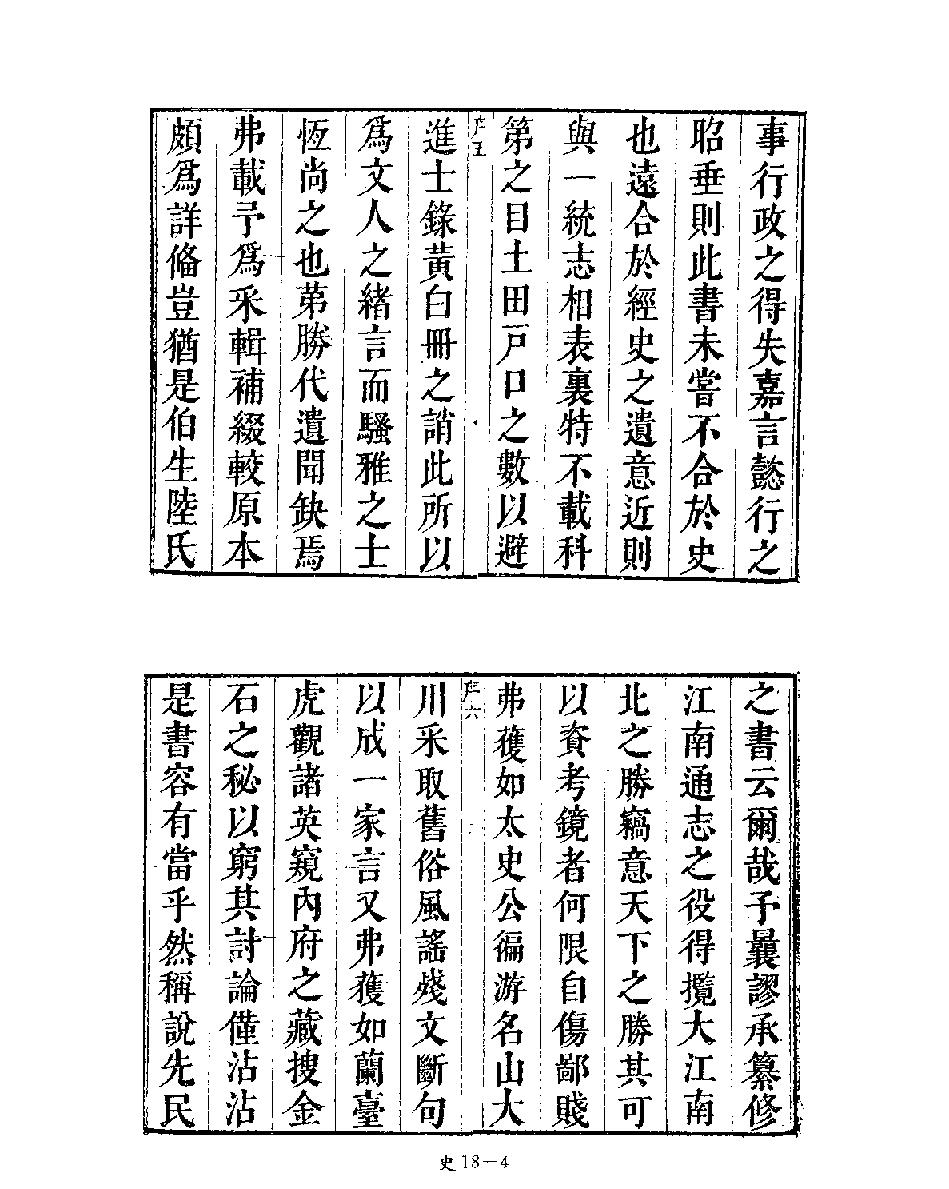 事行政之得失嘉言懿行之
昭垂則此書未嘗不合於史
也遠合於經史之遺意近則
與一統志相表裏特不載科
第之目土田戸口之數以避
序五
進士錄黃白冊之誚此所以
爲文人之緒言而騷雅之士
恆尚之也苐勝代遺聞缺焉
弗載予爲采輯補綴較原本
頗爲詳偹豈猶是伯生陸氏
之書云爾哉予曩謬承纂修
江南通志之役得攬大江南
北之勝竊意天下之勝其可
以資考鏡者何限自傷鄙賤
弗獲如太史公徧游名山大
序六
川采取舊俗風謠殘文斷句
以成一家言又弗獲如蘭臺
虎觀諸英窺內府之藏搜金
石之秘以窮其討論僅沾沾
是書容有當乎然稱說先民
史18－4